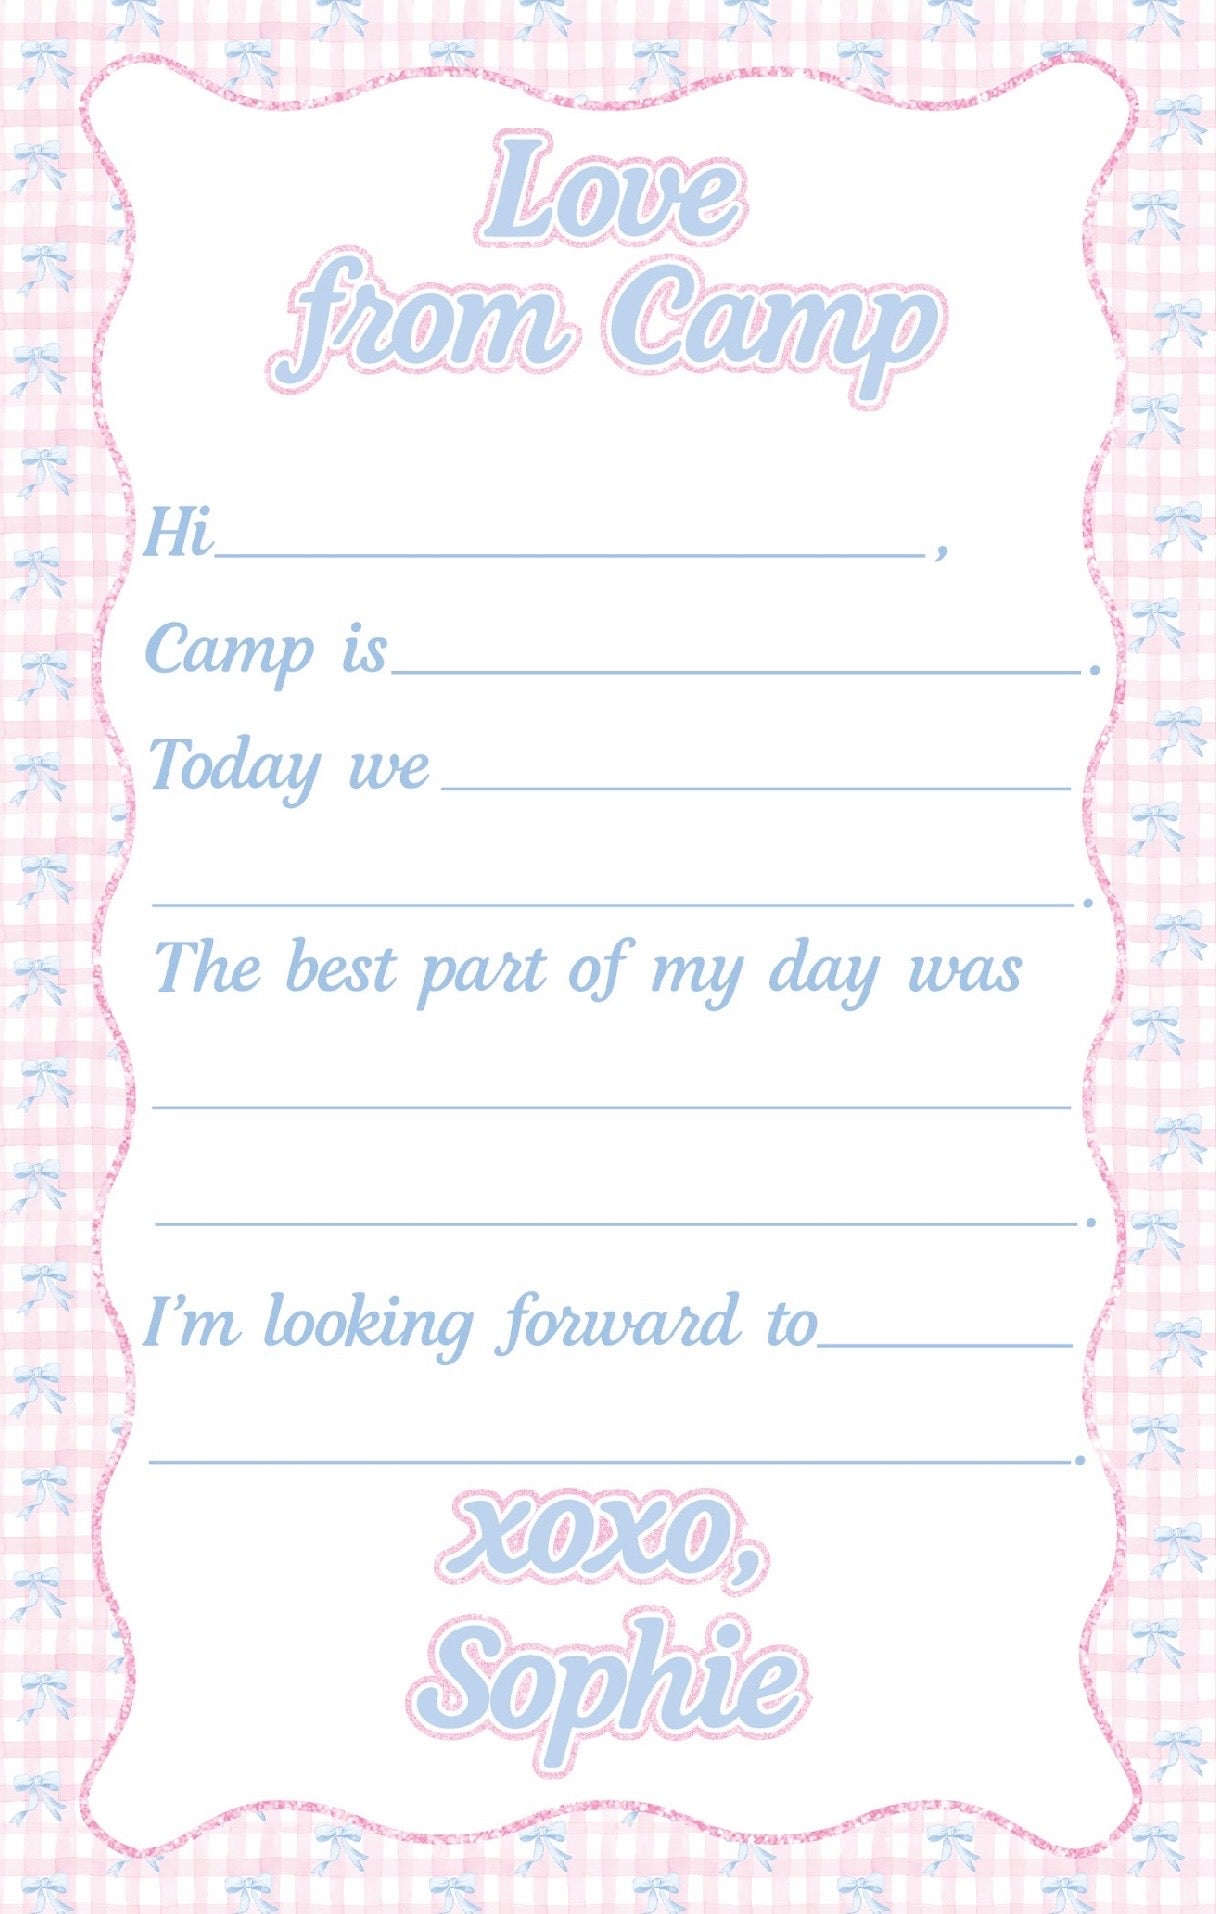 Love
from Camp
Hi____________________,
Camp is____________________.
Today we ____________________
____________________.
The best part of my day was
____________________
____________________.
I'm looking forward to________
____________________.
xoxo,
Sophie